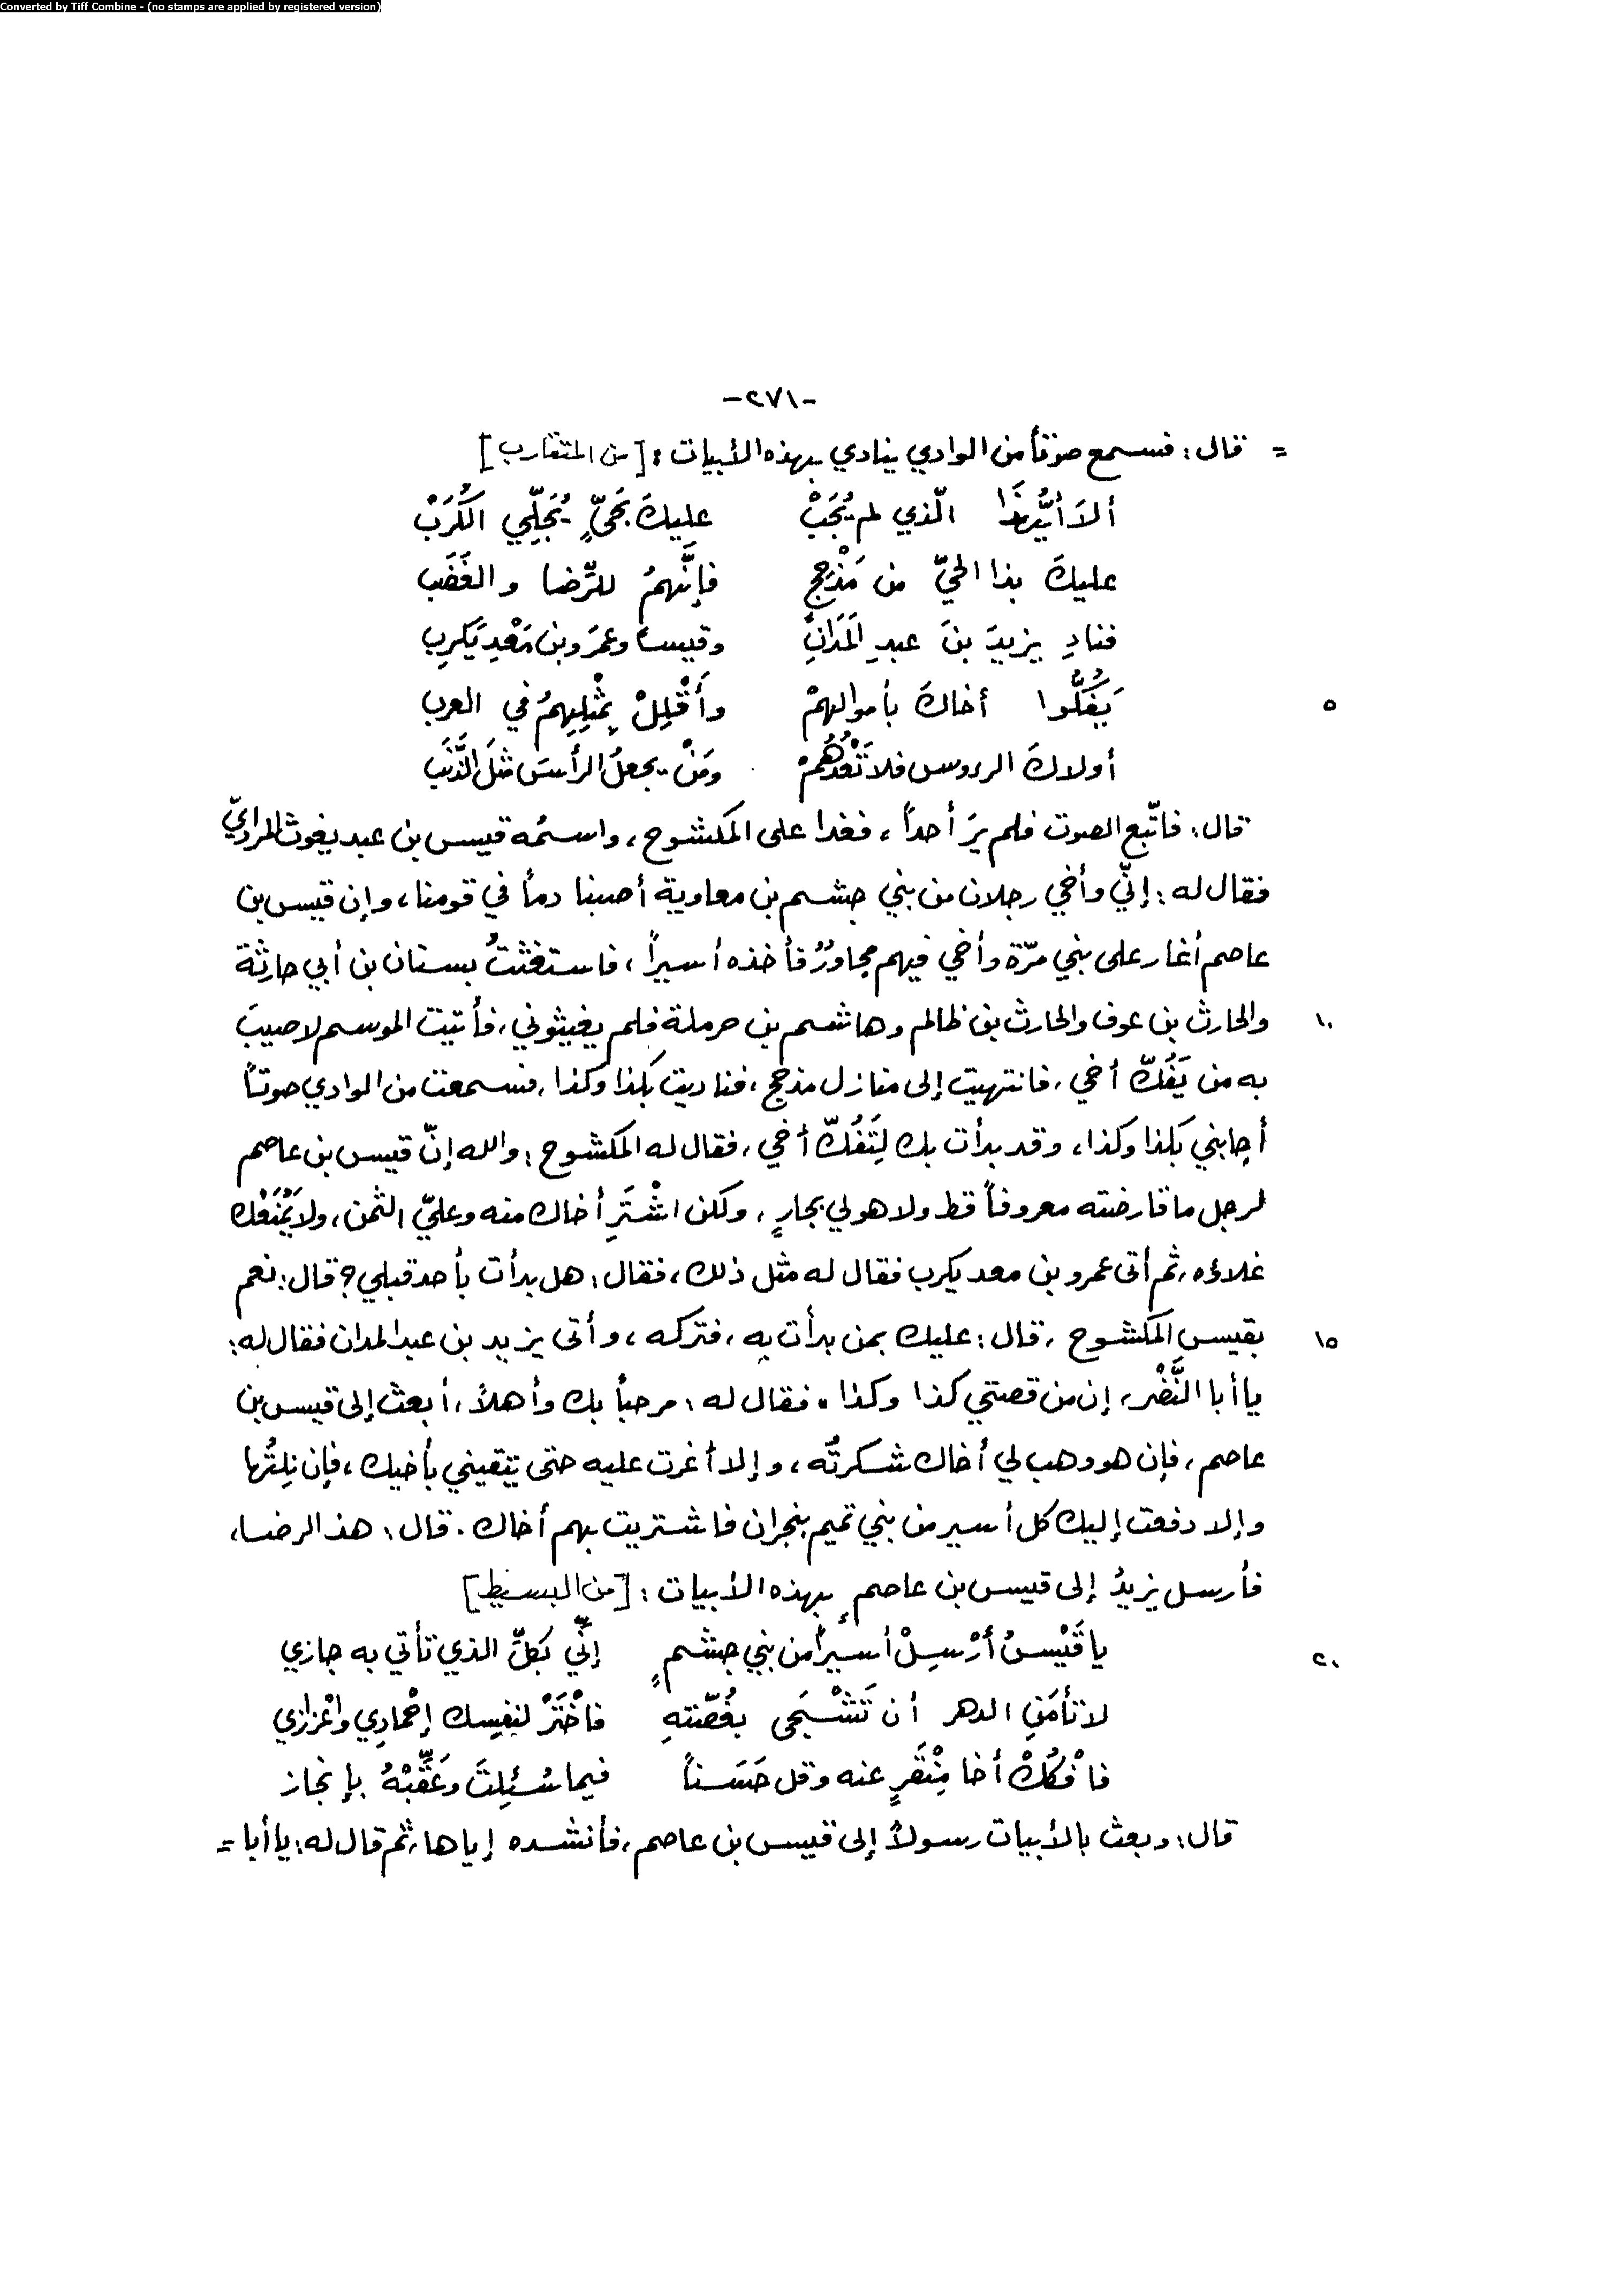 Converted by Tiff Combine - (no stamps are applied by registered version)
-٢٧١-
= قال: فسمع صوتاً من الوادي ينادي بهذه الأبيات: [من المتقارب]
ألاَ أيُّهَذَا الّذي لم يُجَبْ عليكَ بحَيٍّ يُجَلِّي الكُرَبْ
عليكَ بذا الحيِّ من مَذْحِجٍ فإنَّهمُ للرِّضا والغَضَبِ
فنادِ يزيدَ بنَ عبدِ المَدَانِ وقيساً وعمرَو بن مَعْدِيَكرِبِ
٥ يَفُكُّوا أخاكَ بأموالهمْ وأَقْلِلْ بِمْثلِهِمُ في العرب
أولاكَ الرءوس فلا تَعْدُهُمْ ومَنْ يجعلُ الرأسَ مثلَ الذَّنَبِ
قال: فاتّبع الصوت فلم يرَ أحداً، فغدا على المكشوح، واسمُه قيس بن عبد يغوث المراديّ
فقال له: إنّي وأخي رجلان من بني جشم بن معاوية أصبنا دماً في قومنا، وإن قيس بن
عاصم أغار على بني مرّة وأخي فيهم مجاورٌ فأخذه أسيراً، فاستغثتُ بسنان بن أبي حارثة
١٠ والحارث بن عوف والحارث بن ظالم وهاشم بن حرملة فلم يغيثوني، فأتيت الموسم لاصيبَ
به من يَفُكّ أخي، فانتهيت إلى منازل مذحج، فناديت بكذا وكذا، فسمعت من الوادي صوتاً
أجابني بكذا وكذا، وقد بدأت بك لِتَفُكّ أخي، فقال له المكشوح: والله إنّ قيس بن عاصم
لرجل ما قارضته معروفاً قط ولا هو لي بجارٍ، ولكن اشْتَرِ أخاك منه وعليّ الثمن، ولا يَمْنَعْك
غلاؤه، ثم أتى عمرو بن معد يكرب فقال له مثل ذلك، فقال: هل بدأت بأحد قبلي؟ قال: نعم
١٥ بقيس المكشوح، قال: عليك بمن بدأت به، فتركه، وأتى يزيد بن عبد المدان فقال له:
يا أبا النَّضْر، إن من قصتي كذا وكذا. فقال له: مرحباً بك وأهلاً، أبعث إلى قيس بن
عاصم، فإن هو وهب لي أخاك شكرتُه، وإلا أغرت عليه حتى يتقيني بأخيك، فإن نلتُها
وإلا دفعت إليك كل أسير من بني تميم بنجران فاشتريت بهم أخاك. قال: هذ الرضا،
فأرسل يزيدُ إلى قيس بن عاصمٍ بهذه الأبيات: [من البسيط]
٢٠ يا قَيْسُ أرْسِلْ أسيراً من بني جشمٍ إنّي بكلِّ الذي تأتي به جازي
لا تأمَنِ الدهر أن تَشْجَى بغُصّتهِ فاخْتَرْ لنفسِك إحْمادِي واعْزازي
فافْكُكْ أخا مِنْقَرٍ عنه وقل حَسَناً فيما سُئِلتَ وعَقِّبْهُ بإنجاز
قال: وبعث بالأبيات رسولاً إلى قيس بن عاصم، فأنشده إياها، ثم قال له: يا أبا =